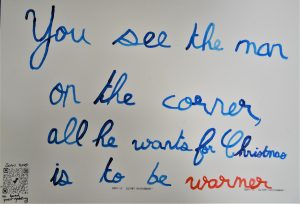 You see the man
on the corner,
all he wants for Christmas
is to be warmer